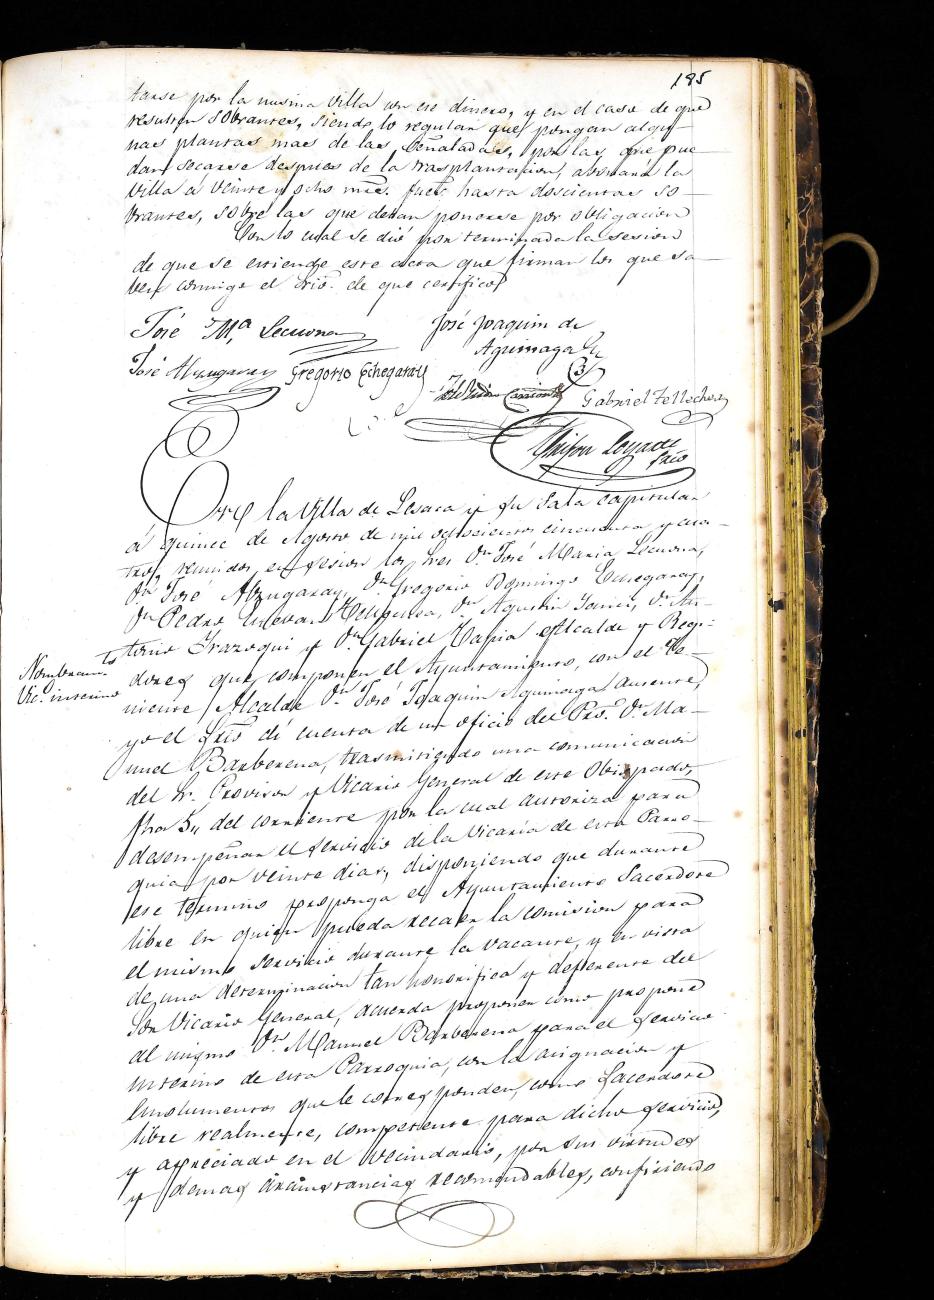 185
tarse por la misma villa con ese dinero, y en el caso de que
resulten sobrantes, siendo lo regular que pongan algu-
nas plantas mas de las señaladas, por las que pue-
dan secarse despues de la trasplantacion, abonará la
Villa á veinte y ocho mrs. fuets hasta doscientas so-
brantes, sobre las que deban ponerse por obligacion
Con lo cual se dió por terminada la sesion
de que se estiende este acta que firman los que sa-
ben conmigo el Srio. de que certifico
José Ma. Lecuona
José Joaquim de
Aguinaga
José Alzugaray Gregorio Echegaray
Gabriel Tellechea
Srio
En la Villa de Lesaca y su Sala capitular
á quince de Agosto de mil ochocientos cincuenta y cua-
tro, reunidos en sesion los Sres Dn. José Maria Lecuona,
Dn José Alzugaray, Dn Gregorio Domingo Echegaray,
Dn Pedro Estevan Dn Agustin Dn. An-
tonio Irazoqui y Dn Gabriel Tapia Alcalde y Regi-
dores que componen el Ayuntamiento, con el Te-
niente Alcalde Dn José Joaquin Aguinaga ausente,
Nombram.to
Vic.o interino
yo el Srio dí cuenta de un oficio del Pro. Dn Ma-
nuel Barberena, trasmitiendo una comunicacion
del Sr. Provisor y Vicario General de este Obispado,
fha 5,, del corriente por la cual autoriza para
desempeñar el servicio de la Vicaría de esta Parro-
quia por veinte dias, disponiendo que durante
ese termino proponga el Ayuntamiento Sacerdote
libre en quien pueda recaer la comision para
el mismo servicio durante la vacante, y en vista
de una determinacion tan honorifica y deferente del
Sor Vicario General, acuerda proponer como propone
al mismo Dn Manuel Barberena para el servicio
interino de esta Parroquia, con la asignacion y
emolumentos que le corresponden, como Sacerdote
libre realmente, competente para dicho servicio,
y apreciado en el vecindario, por sus virtudes
y demas circunstancias recomendables, confiriendo